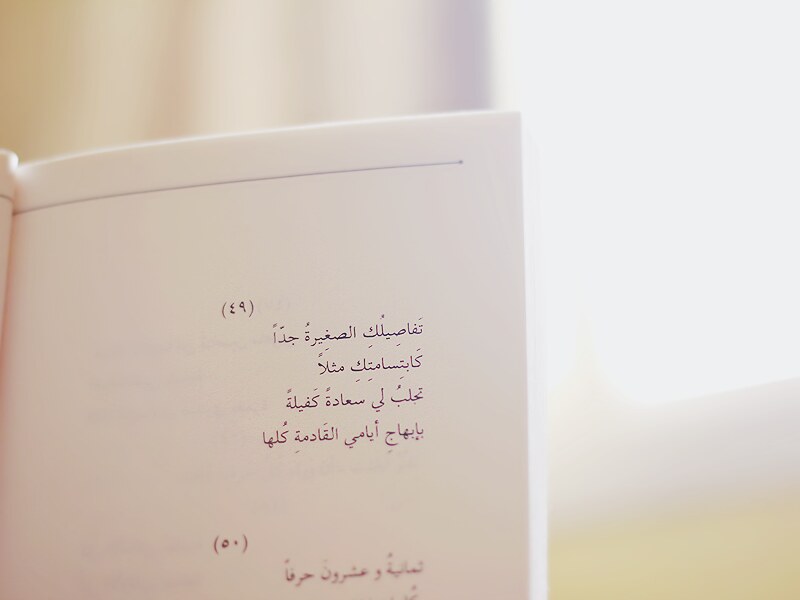 (٤٩)
تَفاصِيلُكِ الصغِيرةُ جدّاً
كَابتِسامتِكِ مثلاً
تجلبُ لي سعادةً كَفيلةً
بإبهاجِ أيامي القَادمةِ كُلها
(٥٠)
ثمانيةُ و عشرونَ حرفاً